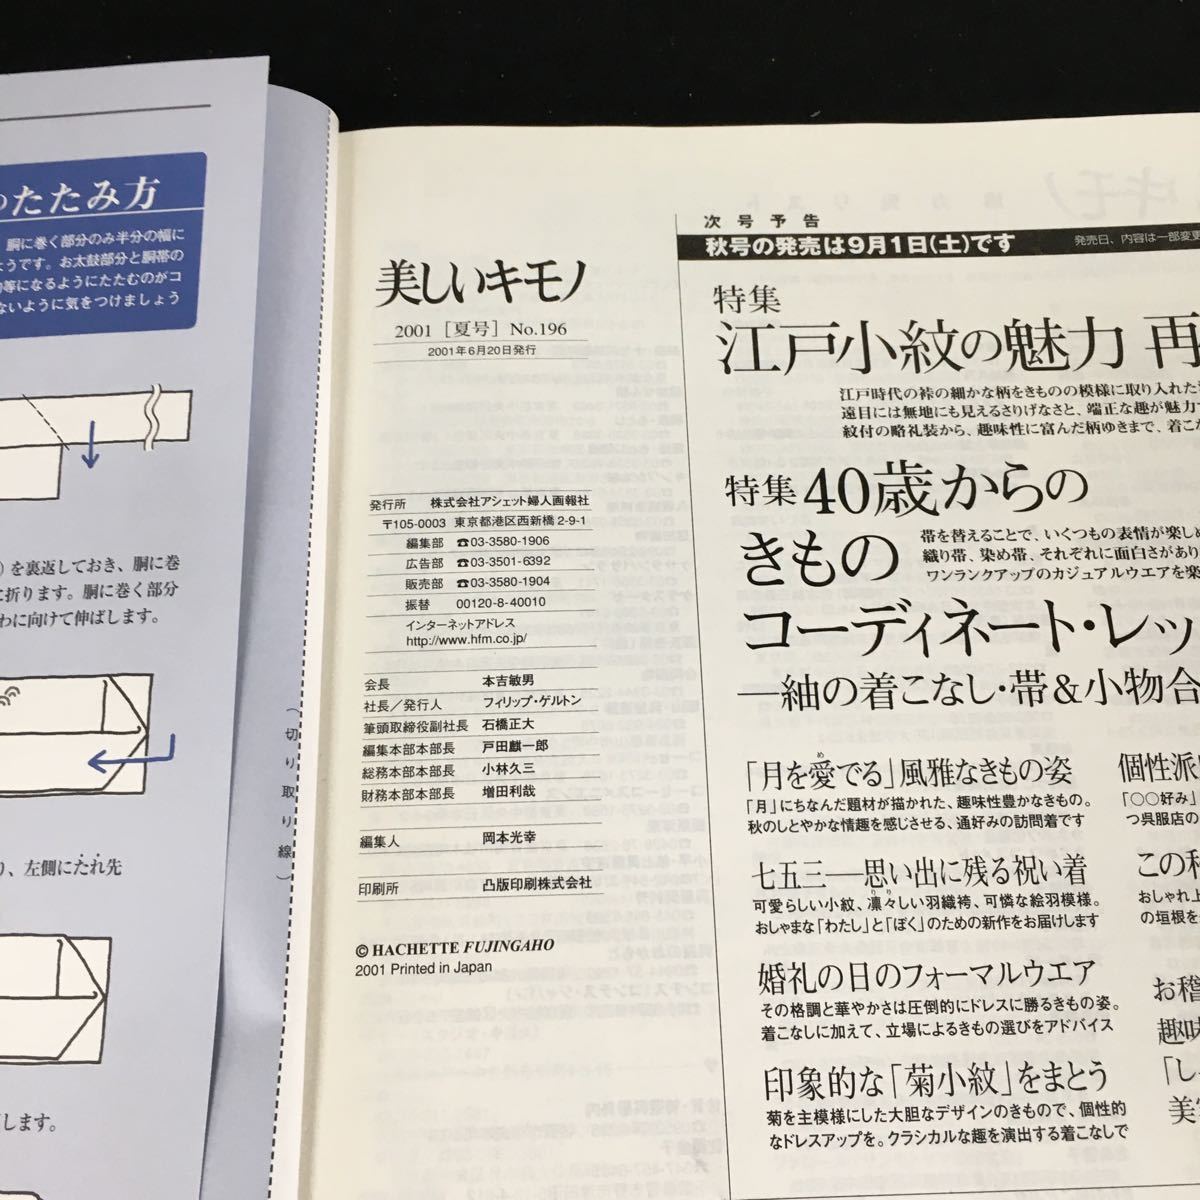 たたみ方
胴に巻く部分のみ半分の幅に
ようです。お太鼓部分と胴帯の
等になるようにたたむのがコ
ないように気をつけましょう
を裏返しておき、胴に巻
に折ります。胴に巻く部分
わに向けて伸ばします。
（切り取り線）
、左側にたれ先
します。
美しいキモノ
2001［夏号］No.196
2001年6月20日発行
発行所 株式会社アシェット婦人画報社
〒105-0003 東京都港区西新橋2-9-1
編集部 ☎03-3580-1906
広告部 ☎03-3501-6392
販売部 ☎03-3580-1904
振替 00120-8-40010
インターネットアドレス
http://www.hfm.co.jp/
会長 本吉敏男
社長／発行人 フィリップ・ゲルトン
筆頭取締役副社長 石橋正大
編集本部本部長 戸田麒一郎
総務本部本部長 小林久三
財務本部本部長 増田利哉
編集人 岡本光幸
印刷所 凸版印刷株式会社
© HACHETTE FUJINGAHO
2001 Printed in Japan
次号予告
秋号の発売は9月1日(土)です 発売日、内容は一部変更
特集
江戸小紋の魅力 再
江戸時代の裃の細かな柄をきものの模様に取り入れた
遠目には無地にも見えるさりげなさと、端正な趣が魅力
紋付の略礼装から、趣味性に富んだ柄ゆきまで、着こな
特集 40歳からの
きもの
帯を替えることで、いくつもの表情が楽しめ
織り帯、染め帯、それぞれに面白さがあり
ワンランクアップのカジュアルウエアを楽
コーディネート・レッ
―紬の着こなし・帯&小物合
「月を愛でる」風雅なきもの姿
「月」にちなんだ題材が描かれた、趣味性豊かなきもの。
秋のしとやかな情趣を感じさせる、通好みの訪問着です
七五三――思い出に残る祝い着
可愛らしい小紋、凛々しい羽織袴、可憐な絵羽模様。
おしゃまな「わたし」と「ぼく」のための新作をお届けします
婚礼の日のフォーマルウエア
その格調と華やかさは圧倒的にドレスに勝るきもの姿。
着こなしに加えて、立場によるきもの選びをアドバイス
印象的な「菊小紋」をまとう
菊を主模様にした大胆なデザインのきもので、個性的
なドレスアップを。クラシカルな趣を演出する着こなしで
個性派
「○○好み」
つ呉服店の
この利
おしゃれ上
の垣根を
お稽
趣味
「し
美